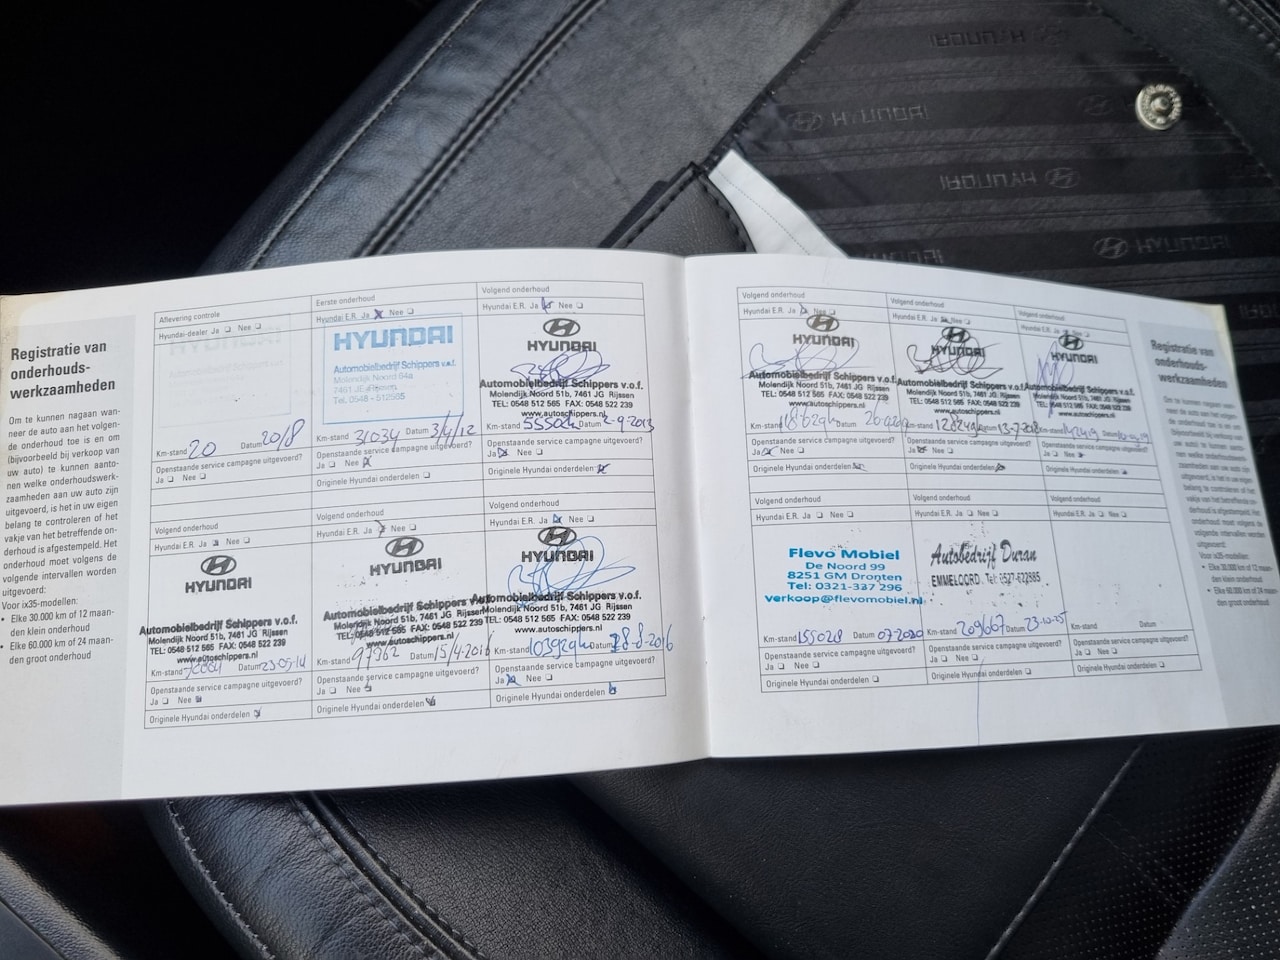 HYUNDAI
HYUNDAI
HYUNDAI
HYUNDAI
Registratie van
onderhouds-
werkzaamheden
Om te kunnen nagaan wan-
neer de auto aan het volgen-
de onderhoud toe is en om
(bijvoorbeeld bij verkoop van
uw auto) te kunnen aanto-
nen welke onderhoudswerk-
zaamheden aan uw auto zijn
uitgevoerd, is het in uw eigen
belang te controleren of het
vakje van het betreffende on-
derhoud is afgestempeld. Het
onderhoud moet volgens de
volgende intervallen worden
uitgevoerd:
Voor ix35-modellen:
• Elke 30.000 km of 12 maan-
den klein onderhoud
• Elke 60.000 km of 24 maan-
den groot onderhoud
Aflevering controle
Hyundai-dealer Ja ❏ Nee ❏
HYUNDAI
Km-stand 20 Datum 20/8
Openstaande service campagne uitgevoerd?
Ja ❏ Nee ❏
Eerste onderhoud
Hyundai E.R. Ja Nee ❏
HYUNDAI
Automobielbedrijf Schippers v.o.f.
Molendijk Noord 94a
7461 JE Rijssen
Tel. 0548 - 512565
Km-stand 31034 Datum 3/4/12
Openstaande service campagne uitgevoerd?
Ja ❏ Nee
Originele Hyundai onderdelen ❏
Volgend onderhoud
Hyundai E.R. Ja Nee ❏
HYUNDAI
Automobielbedrijf Schippers v.o.f.
Molendijk Noord 51b, 7461 JG Rijssen
TEL: 0548 512 565 FAX: 0548 522 239
www.autoschippers.nl
Km-stand Datum 2-9-2013
Openstaande service campagne uitgevoerd?
Ja Nee ❏
Originele Hyundai onderdelen
Volgend onderhoud
Hyundai E.R. Ja Nee ❏
HYUNDAI
Automobielbedrijf Schippers v.o.f.
Molendijk Noord 51b, 7461 JG Rijssen
TEL: 0548 512 565 FAX: 0548 522 239
www.autoschippers.nl
Km-stand Datum 23-05-14
Openstaande service campagne uitgevoerd?
Ja ❏ Nee
Originele Hyundai onderdelen
Volgend onderhoud
Hyundai E.R. Ja Nee ❏
HYUNDAI
Automobielbedrijf Schippers
Molendijk Noord 51b, 7461 JG Rijssen
TEL: 0548 512 565 FAX: 0548 522 239
www.autoschippers.nl
Km-stand 97362 Datum 15/4-2016
Openstaande service campagne uitgevoerd?
Ja ❏ Nee
Originele Hyundai onderdelen
Volgend onderhoud
Hyundai E.R. Ja Nee ❏
HYUNDAI
Automobielbedrijf Schippers v.o.f.
Molendijk Noord 51b, 7461 JG Rijssen
TEL: 0548 512 565 FAX: 0548 522 239
www.autoschippers.nl
Km-stand Datum
Openstaande service campagne uitgevoerd?
Ja Nee ❏
Originele Hyundai onderdelen
Volgend onderhoud
Hyundai E.R. Ja Nee ❏
HYUNDAI
Automobielbedrijf Schippers v.o.f.
Molendijk Noord 51b, 7461 JG Rijssen
TEL: 0548 512 565 FAX: 0548 522 239
www.autoschippers.nl
Km-stand Datum
Openstaande service campagne uitgevoerd?
Ja Nee ❏
Originele Hyundai onderdelen
Volgend onderhoud
Hyundai E.R. Ja Nee ❏
HYUNDAI
Automobielbedrijf Schippers v.o.f.
Molendijk Noord 51b, 7461 JG Rijssen
TEL: 0548 512 565 FAX: 0548 522 239
www.autoschippers.nl
Km-stand Datum
Openstaande service campagne uitgevoerd?
Ja Nee ❏
Originele Hyundai onderdelen
Volgend onderhoud
Hyundai E.R. Ja Nee ❏
HYUNDAI
Automobielbedrijf Schippers v.o.f.
Molendijk Noord 51b, 7461 JG Rijssen
TEL: 0548 512 565 FAX: 0548 522 239
www.autoschippers.nl
Km-stand Datum
Openstaande service campagne uitgevoerd?
Ja ❏ Nee
Originele Hyundai onderdelen
Volgend onderhoud
Hyundai E.R. Ja ❏ Nee ❏
Flevo Mobiel
De Noord 99
8251 GM Dronten
Tel: 0321-337 296
verkoop@flevomobiel.nl
Km-stand 155028 Datum 07-2020
Openstaande service campagne uitgevoerd?
Ja ❏ Nee ❏
Originele Hyundai onderdelen ❏
Volgend onderhoud
Hyundai E.R. Ja ❏ Nee ❏
Autobedrijf Duran
EMMELOORD. Tel: 0527-622885
Km-stand 209667 Datum 23-10-25
Openstaande service campagne uitgevoerd?
Ja ❏ Nee ❏
Originele Hyundai onderdelen ❏
Volgend onderhoud
Hyundai E.R. Ja ❏ Nee ❏
Km-stand Datum
Openstaande service campagne uitgevoerd?
Ja ❏ Nee ❏
Originele Hyundai onderdelen ❏
Registratie van
onderhouds-
werkzaamheden